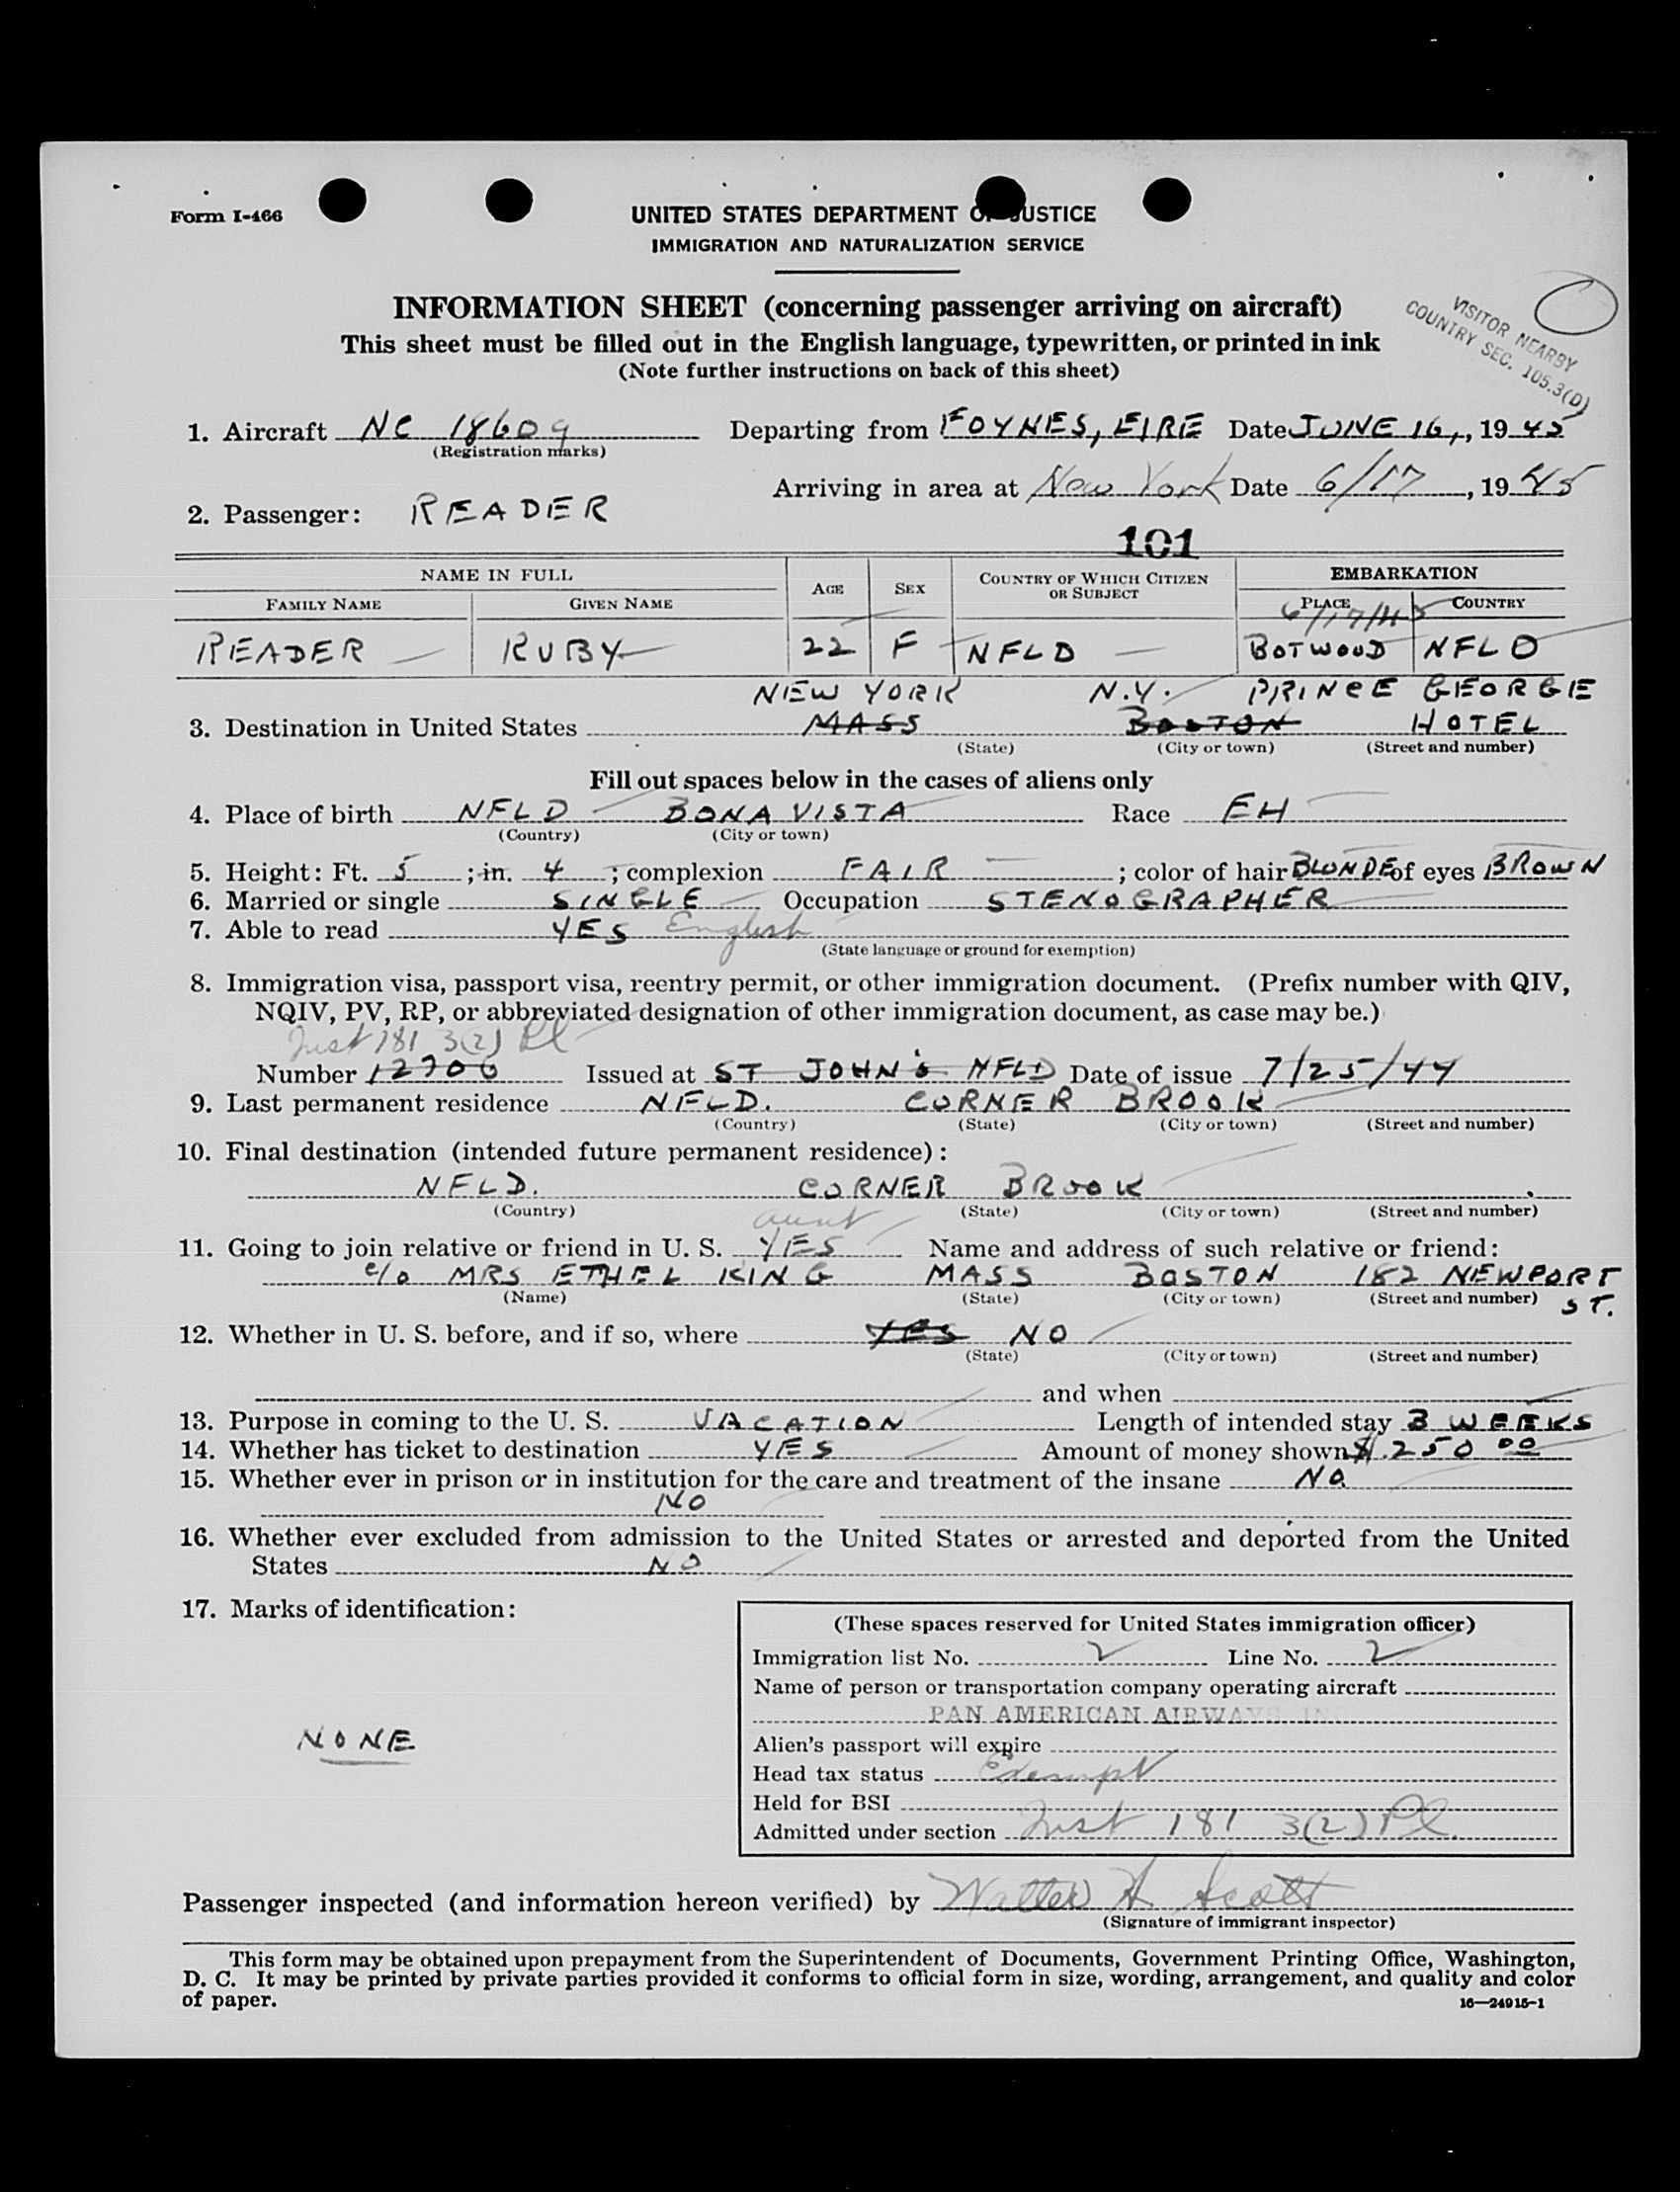 Form I-466
UNITED STATES DEPARTMENT OF JUSTICE
IMMIGRATION AND NATURALIZATION SERVICE
INFORMATION SHEET (concerning passenger arriving on aircraft)
This sheet must be filled out in the English language, typewritten, or printed in ink
(Note further instructions on back of this sheet)
VISITOR NEARBY
COUNTRY SEC. 105.3(D)
1. Aircraft NC 18609 Departing from FOYNES, EIRE Date JUNE 16, , 19 45
(Registration marks)
Arriving in area at New York Date 6/17 , 19 45
2. Passenger: READER
101
NAME IN FULL AGE SEX COUNTRY OF WHICH CITIZEN OR SUBJECT EMBARKATION
FAMILY NAME GIVEN NAME PLACE COUNTRY
6/17/45
READER RUBY 22 F NFLD BOTWOOD NFLD
NEW YORK N.Y. PRINCE GEORGE
3. Destination in United States MASS BOSTON HOTEL
(State) (City or town) (Street and number)
Fill out spaces below in the cases of aliens only
4. Place of birth NFLD BONAVISTA Race EH
(Country) (City or town)
5. Height: Ft. 5 ; in. 4 ; complexion FAIR ; color of hair BLONDE of eyes BROWN
6. Married or single SINGLE Occupation STENOGRAPHER
7. Able to read YES English
(State language or ground for exemption)
8. Immigration visa, passport visa, reentry permit, or other immigration document. (Prefix number with QIV,
NQIV, PV, RP, or abbreviated designation of other immigration document, as case may be.)
Inst 181 3(2) Pl
Number 12706 Issued at ST JOHN'S NFLD Date of issue 7/25/44
9. Last permanent residence NFLD. CORNER BROOK
(Country) (State) (City or town) (Street and number)
10. Final destination (intended future permanent residence):
NFLD. CORNER BROOK
(Country) (State) (City or town) (Street and number)
aunt
11. Going to join relative or friend in U. S. YES Name and address of such relative or friend:
c/o MRS ETHEL KING MASS BOSTON 182 NEWPORT
(Name) (State) (City or town) (Street and number) ST.
12. Whether in U. S. before, and if so, where YES NO
(State) (City or town) (Street and number)
and when
13. Purpose in coming to the U. S. VACATION Length of intended stay 3 WEEKS
14. Whether has ticket to destination YES Amount of money shown $.250 00
15. Whether ever in prison or in institution for the care and treatment of the insane NO
NO
16. Whether ever excluded from admission to the United States or arrested and deported from the United
States NO
17. Marks of identification:
NONE
(These spaces reserved for United States immigration officer)
Immigration list No. 2 Line No. 2
Name of person or transportation company operating aircraft
PAN AMERICAN AIRWAYS INC
Alien's passport will expire
Head tax status Exempt
Held for BSI
Admitted under section Inst 181 3(2) Pl.
Passenger inspected (and information hereon verified) by Walter A Scott
(Signature of immigrant inspector)
This form may be obtained upon prepayment from the Superintendent of Documents, Government Printing Office, Washington,
D. C. It may be printed by private parties provided it conforms to official form in size, wording, arrangement, and quality and color
of paper.
16—24915-1